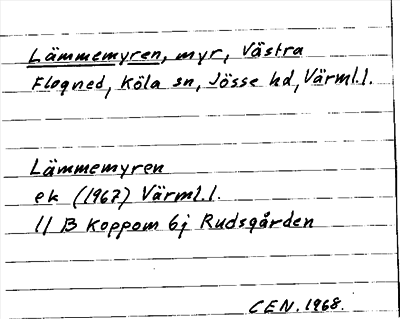 Lämmemyren, myr, Västra
Flogned, Köla sn, Jösse hd, Värml.l.
Lämmemyren
ek (1967) Värml.l.
11 B Koppom 6j Rudsgården
CEN. 1968.